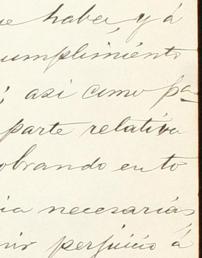 e haber, y á
umplimiento
; asi como pa-
parte relativa
obrando en to
ia necesarias
nir perjuicio á